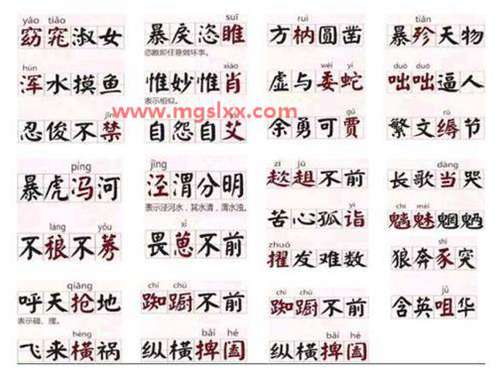 yáo tiǎo suī ruì tiǎn
窈窕淑女 暴戾恣睢 方枘圆凿 暴殄天物
hún xiào wēi yí duō duō
浑水摸鱼 惟妙惟肖 虚与委蛇 咄咄逼人
表示相似。
www.mgslxx.com
jīn yì gǔ rù
忍俊不禁 自怨自艾 余勇可贾 繁文缛节
píng jīng zī jū dàng
暴虎冯河 泾渭分明 趑趄不前 长歌当哭
表示泾河水,其水清,渭水浊。
láng yǒu xǐ yì
不稂不莠 畏葸不前 苦心孤诣 魑魅魍魉
zhuó
擢发难数 狼奔豕突
qiāng chí chú chí chú
呼天抢地 踟蹰不前 踟蹰不前 含英咀华
hèng bǎi hé bǎi hé
飞来横祸 纵横捭阖 纵横捭阖